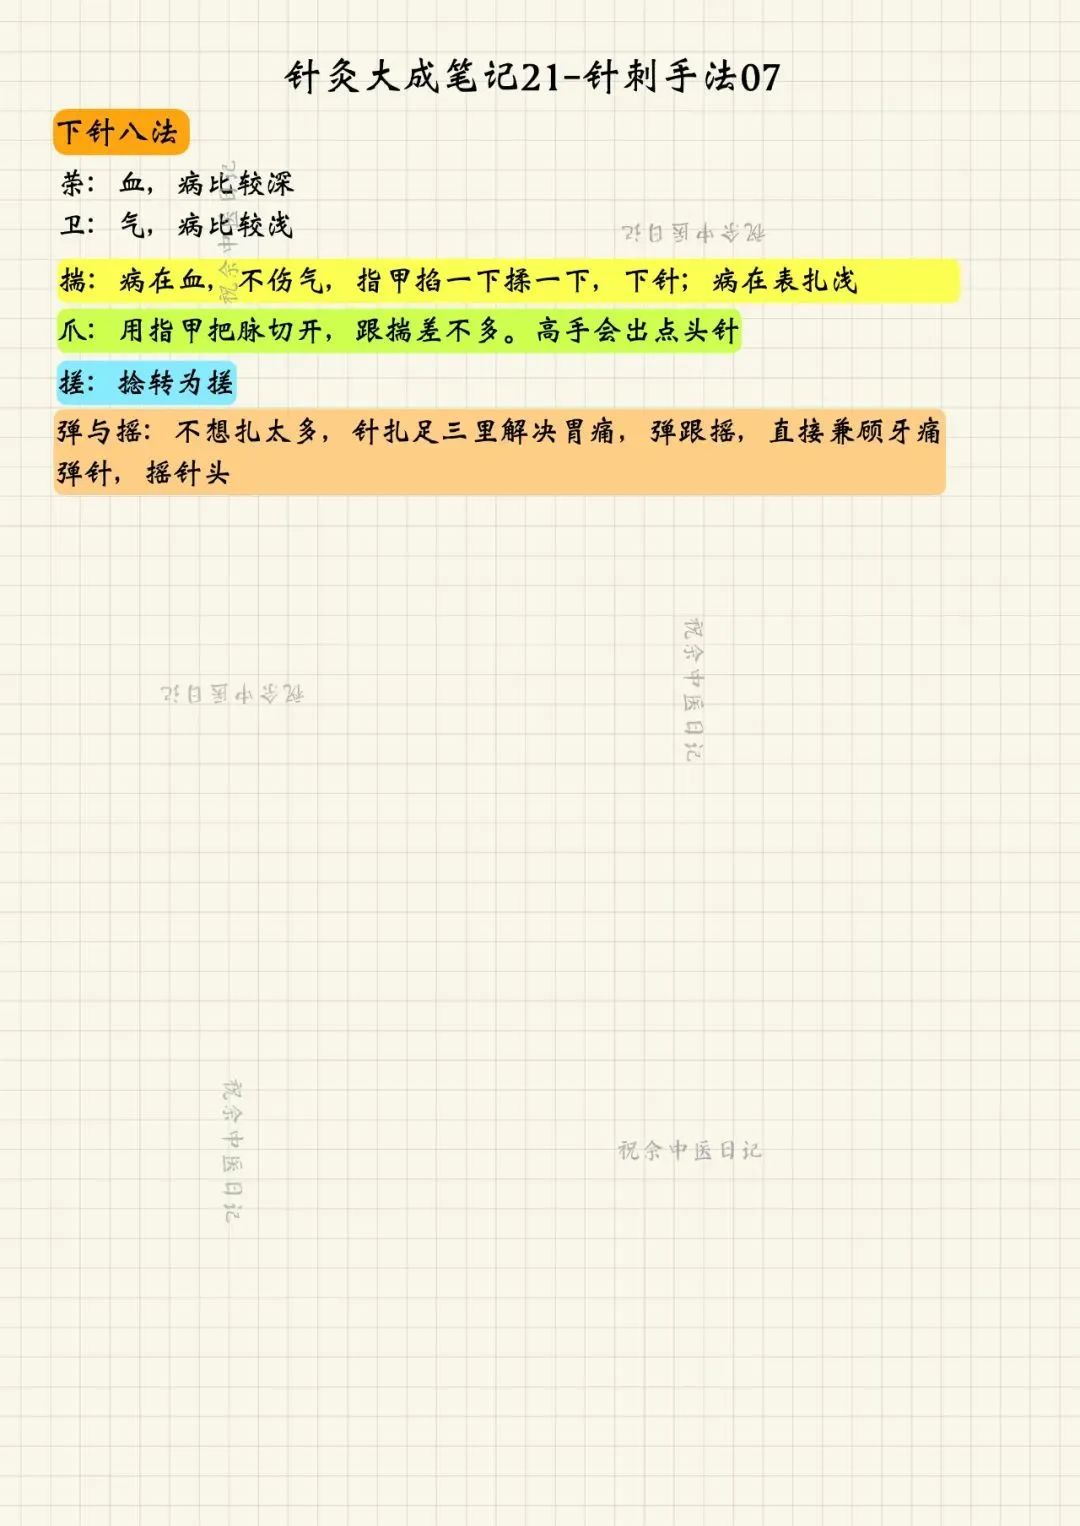 针灸大成笔记21-针刺手法07
下针八法
荣：血，病比较深
卫：气，病比较浅
揣：病在血，不伤气，指甲掐一下揉一下，下针；病在表扎浅
爪：用指甲把脉切开，跟揣差不多。高手会出点头针
搓：捻转为搓
弹与摇：不想扎太多，针扎足三里解决胃痛，弹跟摇，直接兼顾牙痛
弹针，摇针头
祝余中医日记
祝余中医日记
祝余中医日记
祝余中医日记
祝余中医日记
祝余中医日记